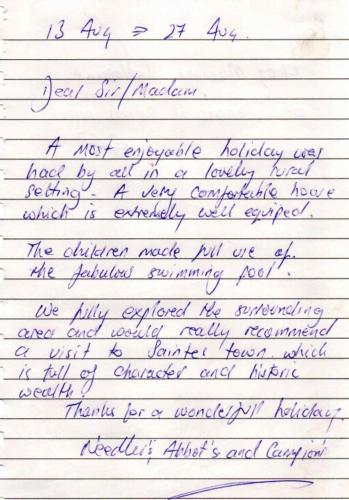 13 Aug ⇒ 27 Aug.
Dear Sir/Madam.
A most enjoyable holiday was
had by all in a lovely rural
setting. A very comfortable house
which is extremely well equiped.
The children made full use of
the fabulous swimming pool.
We fully explored the surrounding
area and would really recommend
a visit to Saintes town. which
is full of character and historic
wealth.
Thanks for a wonderfull holiday.
Needler's, Abbot's and